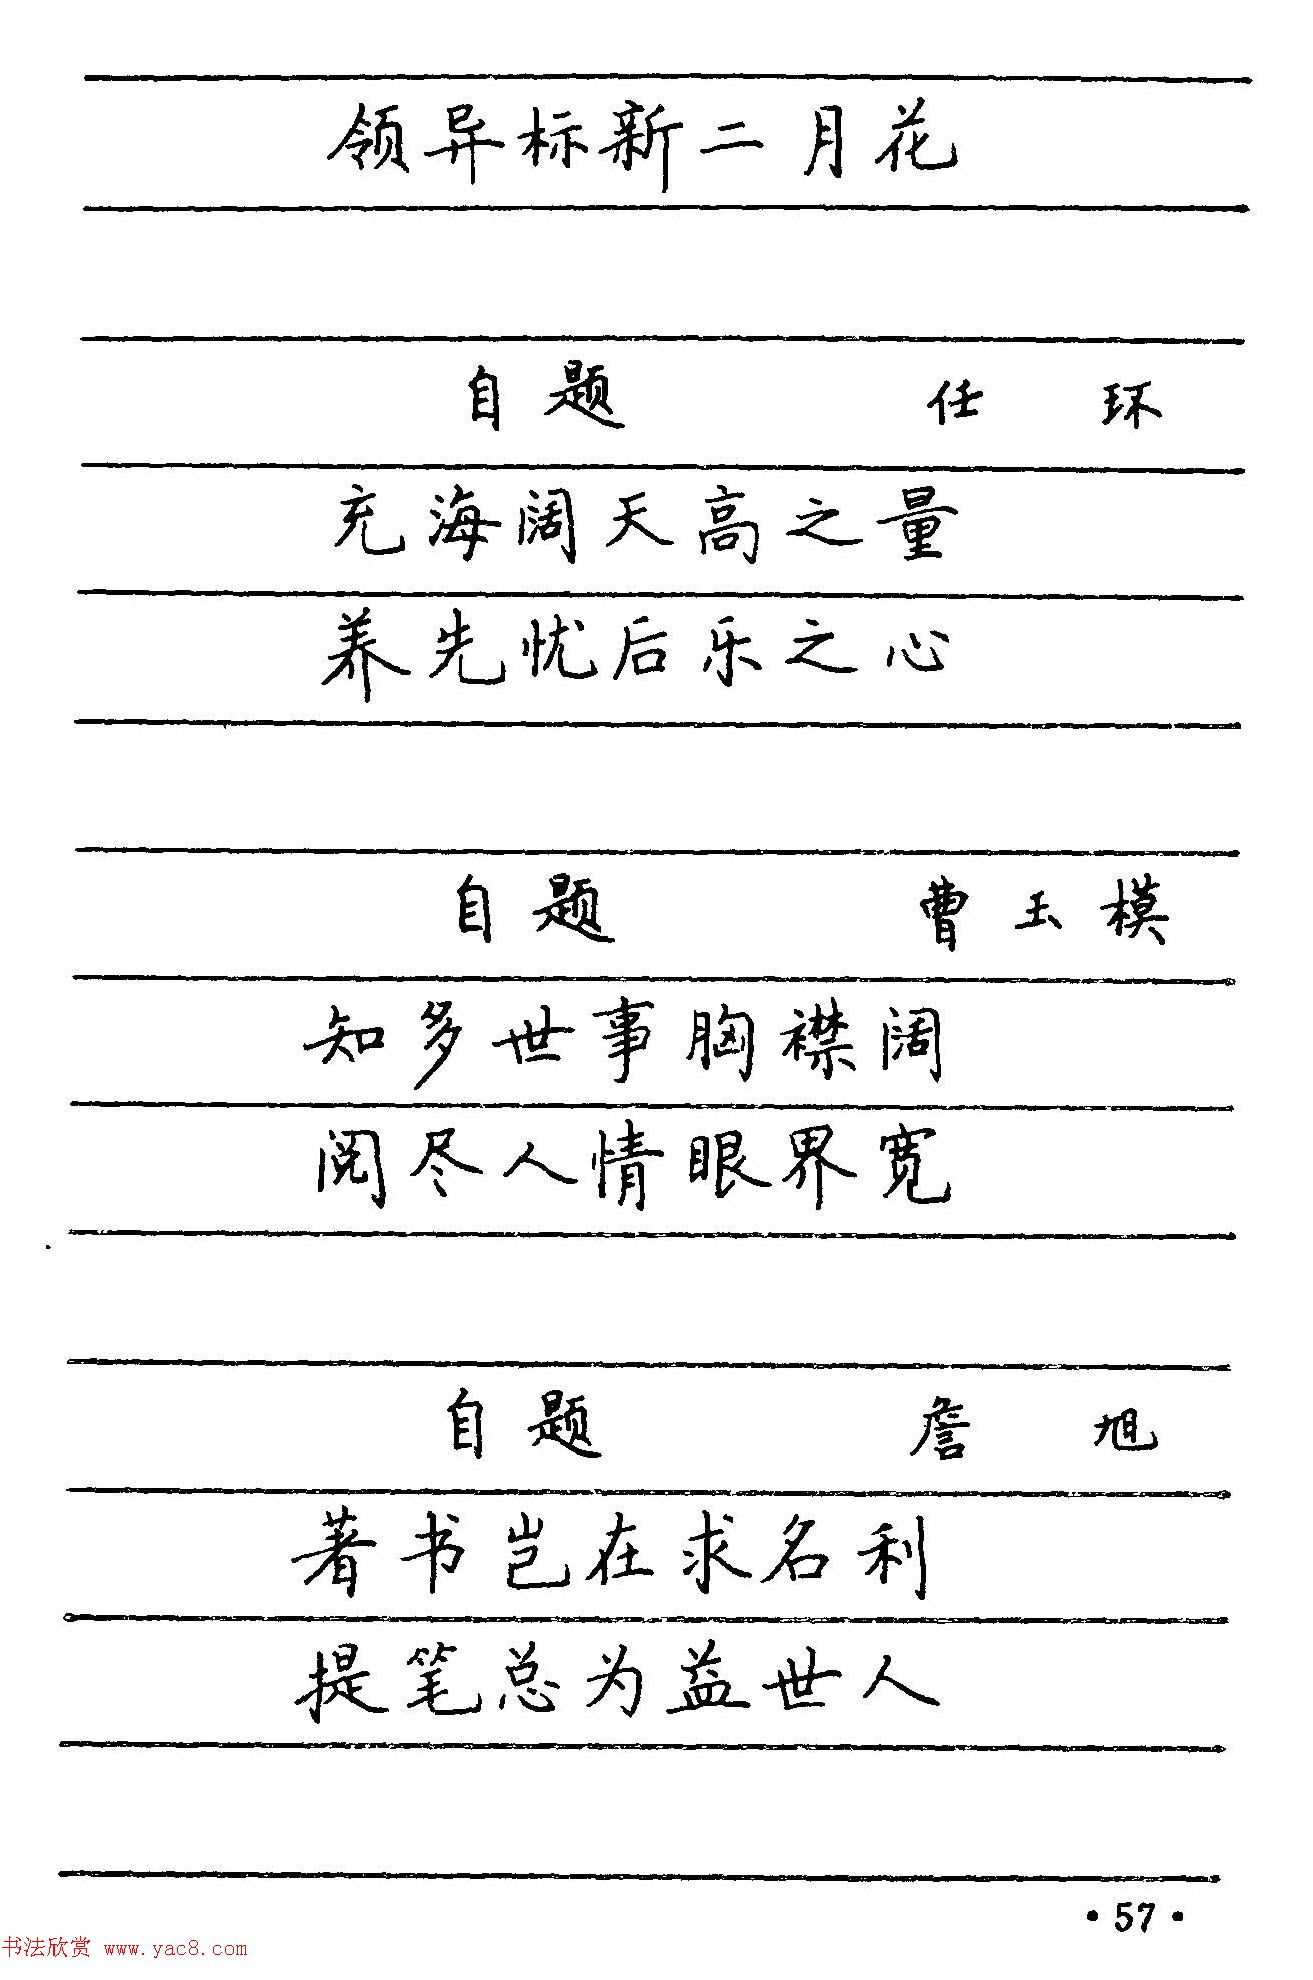 领异标新二月花
自题 任 环
充海阔天高之量
养先忧后乐之心
自题 曹玉模
知多世事胸襟阔
阅尽人情眼界宽
自题 詹 旭
著书岂在求名利
提笔总为益世人
·57·
书法欣赏 www.yac8.com